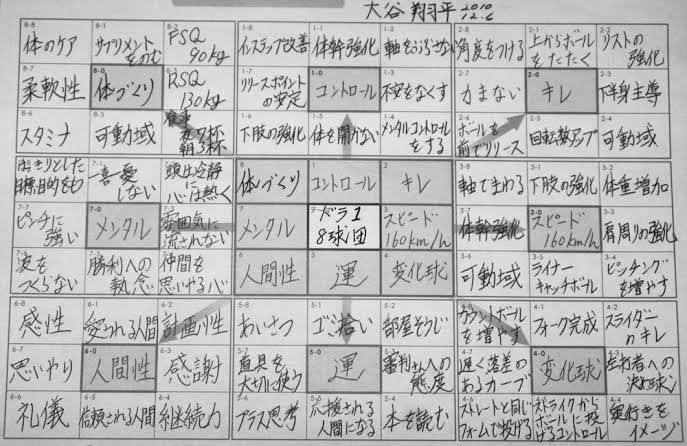 大谷 翔平 2010 12.6
8-8 8-1 8-2 1-8 1-1 1-2 2-8 2-1 2-2
体のケア サプリメントをのむ FSQ 90kg インステップ改善 体幹強化 軸をぶらさない 角度をつける 上からボールをたたく リストの強化
8-7 8-0 8-3 1-7 1-0 1-3 2-7 2-0 2-3
柔軟性 体づくり RSQ 130kg リリースポイントの安定 コントロール 不安をなくす 力まない キレ 下半身主導
8-6 8-5 1-6 1-5 1-4 2-6 2-5 2-4
スタミナ 可動域 食事 夜7杯 朝3杯 下肢の強化 体を開かない メンタルコントロールをする ボールを前でリリース 回転数アップ 可動域
7-1 8 1 2 3-8 3-1 3-2
はっきりとした目標目的をもつ 一喜一憂しない 頭は冷静に心は熱く 体づくり コントロール キレ 軸でまわる 下肢の強化 体重増加
7-7 7-0 7-3 7 3 3-7 3-0 3-3
ピンチに強い メンタル 雰囲気に流されない メンタル ドラ1 8球団 スピード 160km/h 体幹強化 スピード 160km/h 肩周りの強化
7-6 7-5 7-4 6 5 4 3-6 3-5 3-4
波をつくらない 勝利への執念 仲間を思いやる心 人間性 運 変化球 可動域 ライナーキャッチボール ピッチングを増やす
6-8 6-1 6-2 5-8 5-1 5-2 4-8 4-1 4-2
感性 愛される人間 計画性 あいさつ ゴミ拾い 部屋そうじ カウントボールを増やす フォーク完成 スライダーのキレ
6-7 6-0 6-3 5-7 5-0 5-3 4-7 4-0 4-3
思いやり 人間性 感謝 道具を大切に使う 運 審判さんへの態度 遅く落差のあるカーブ 変化球 左打者への決め球
6-6 6-5 6-4 5-6 5-5 5-4 4-6 4-5 4-4
礼儀 信頼される人間 継続力 プラス思考 応援される人間になる 本を読む ストレートと同じフォームで投げる ストライクからボールに投げるコントロール 奥行きをイメージ